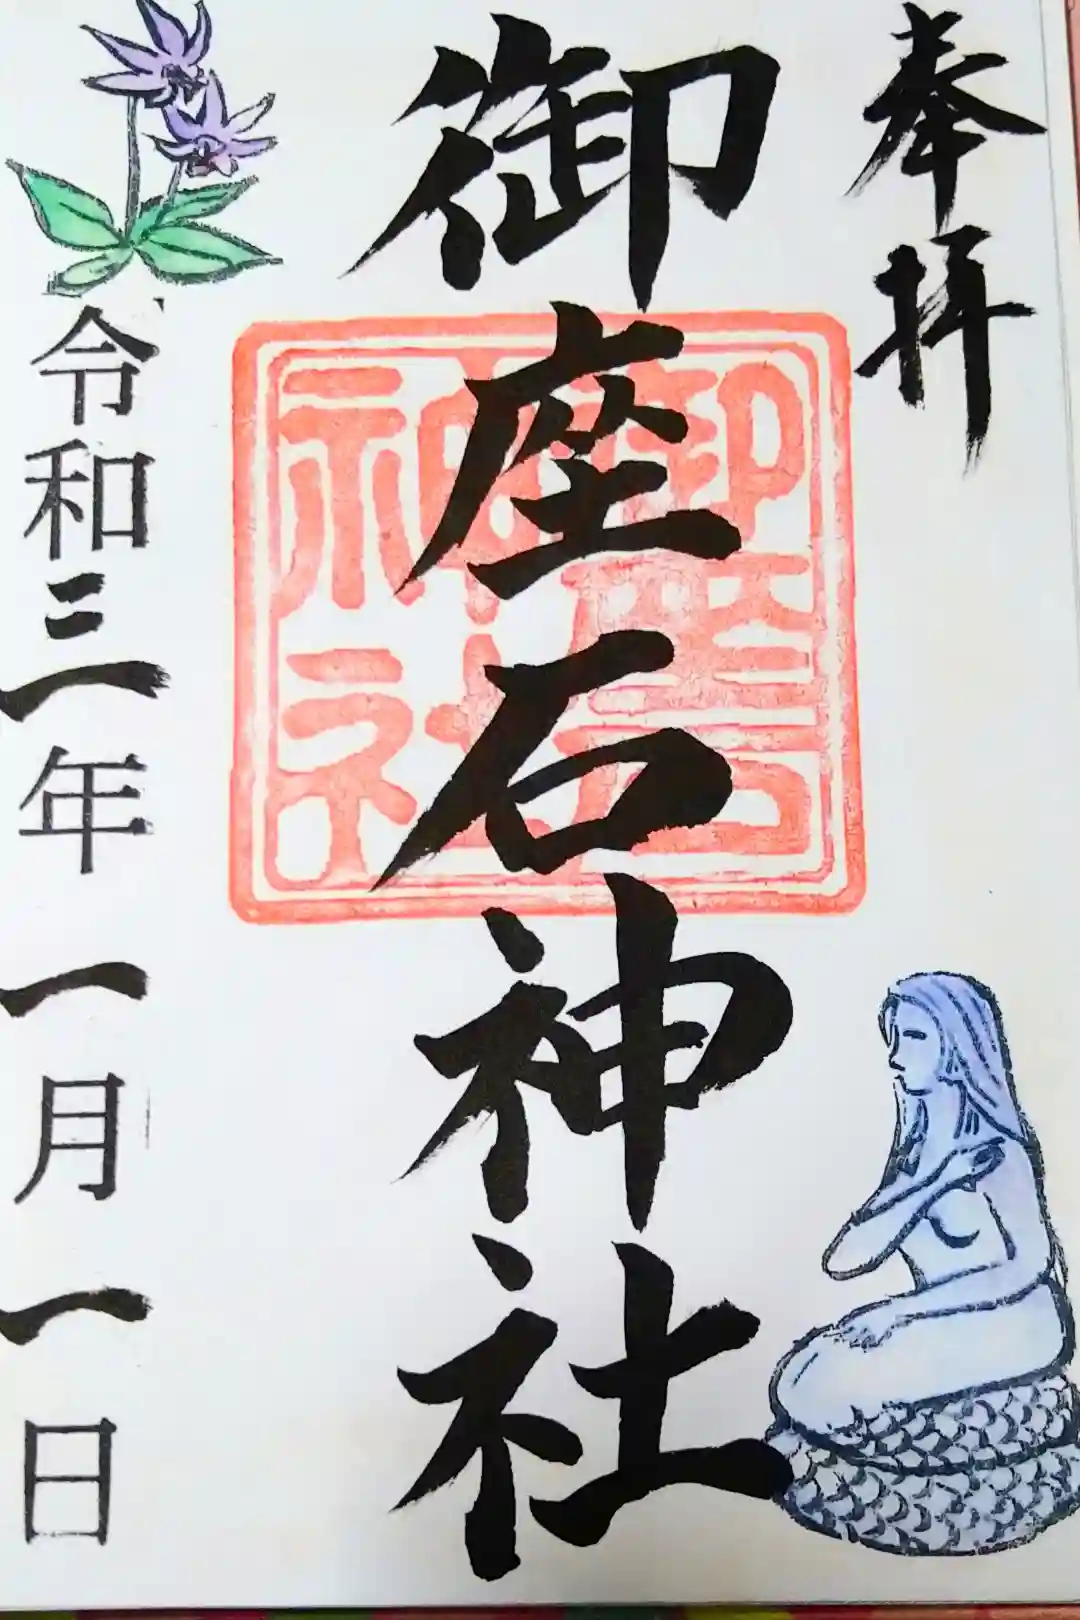 奉拝
御座石神社
御座石
神社
令和三年一月一日